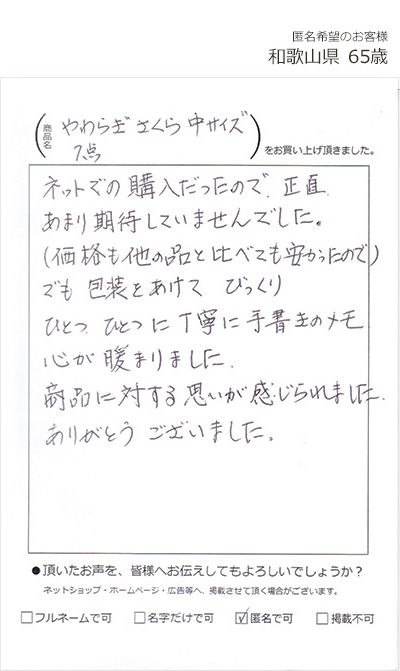 匿名希望のお客様
和歌山県 65歳
(商品名 やわらぎ さくら 中サイズ
7点 )をお買い上げ頂きました。
ネットでの購入だったので、正直
あまり期待していませんでした。
(価格も他の品と比べても安かったので)
でも 包装をあけて びっくり
ひとつ ひとつに丁寧に手書きのメモ
心が暖まりました.
商品に対する思いが感じられました.
ありがとう ございました。
●頂いたお声を、皆様へお伝えしてもよろしいでしょうか？
ネットショップ・ホームページ・広告等へ、掲載させて頂く場合がございます。
□フルネームで可 □名字だけで可 ☑匿名で可 □掲載不可